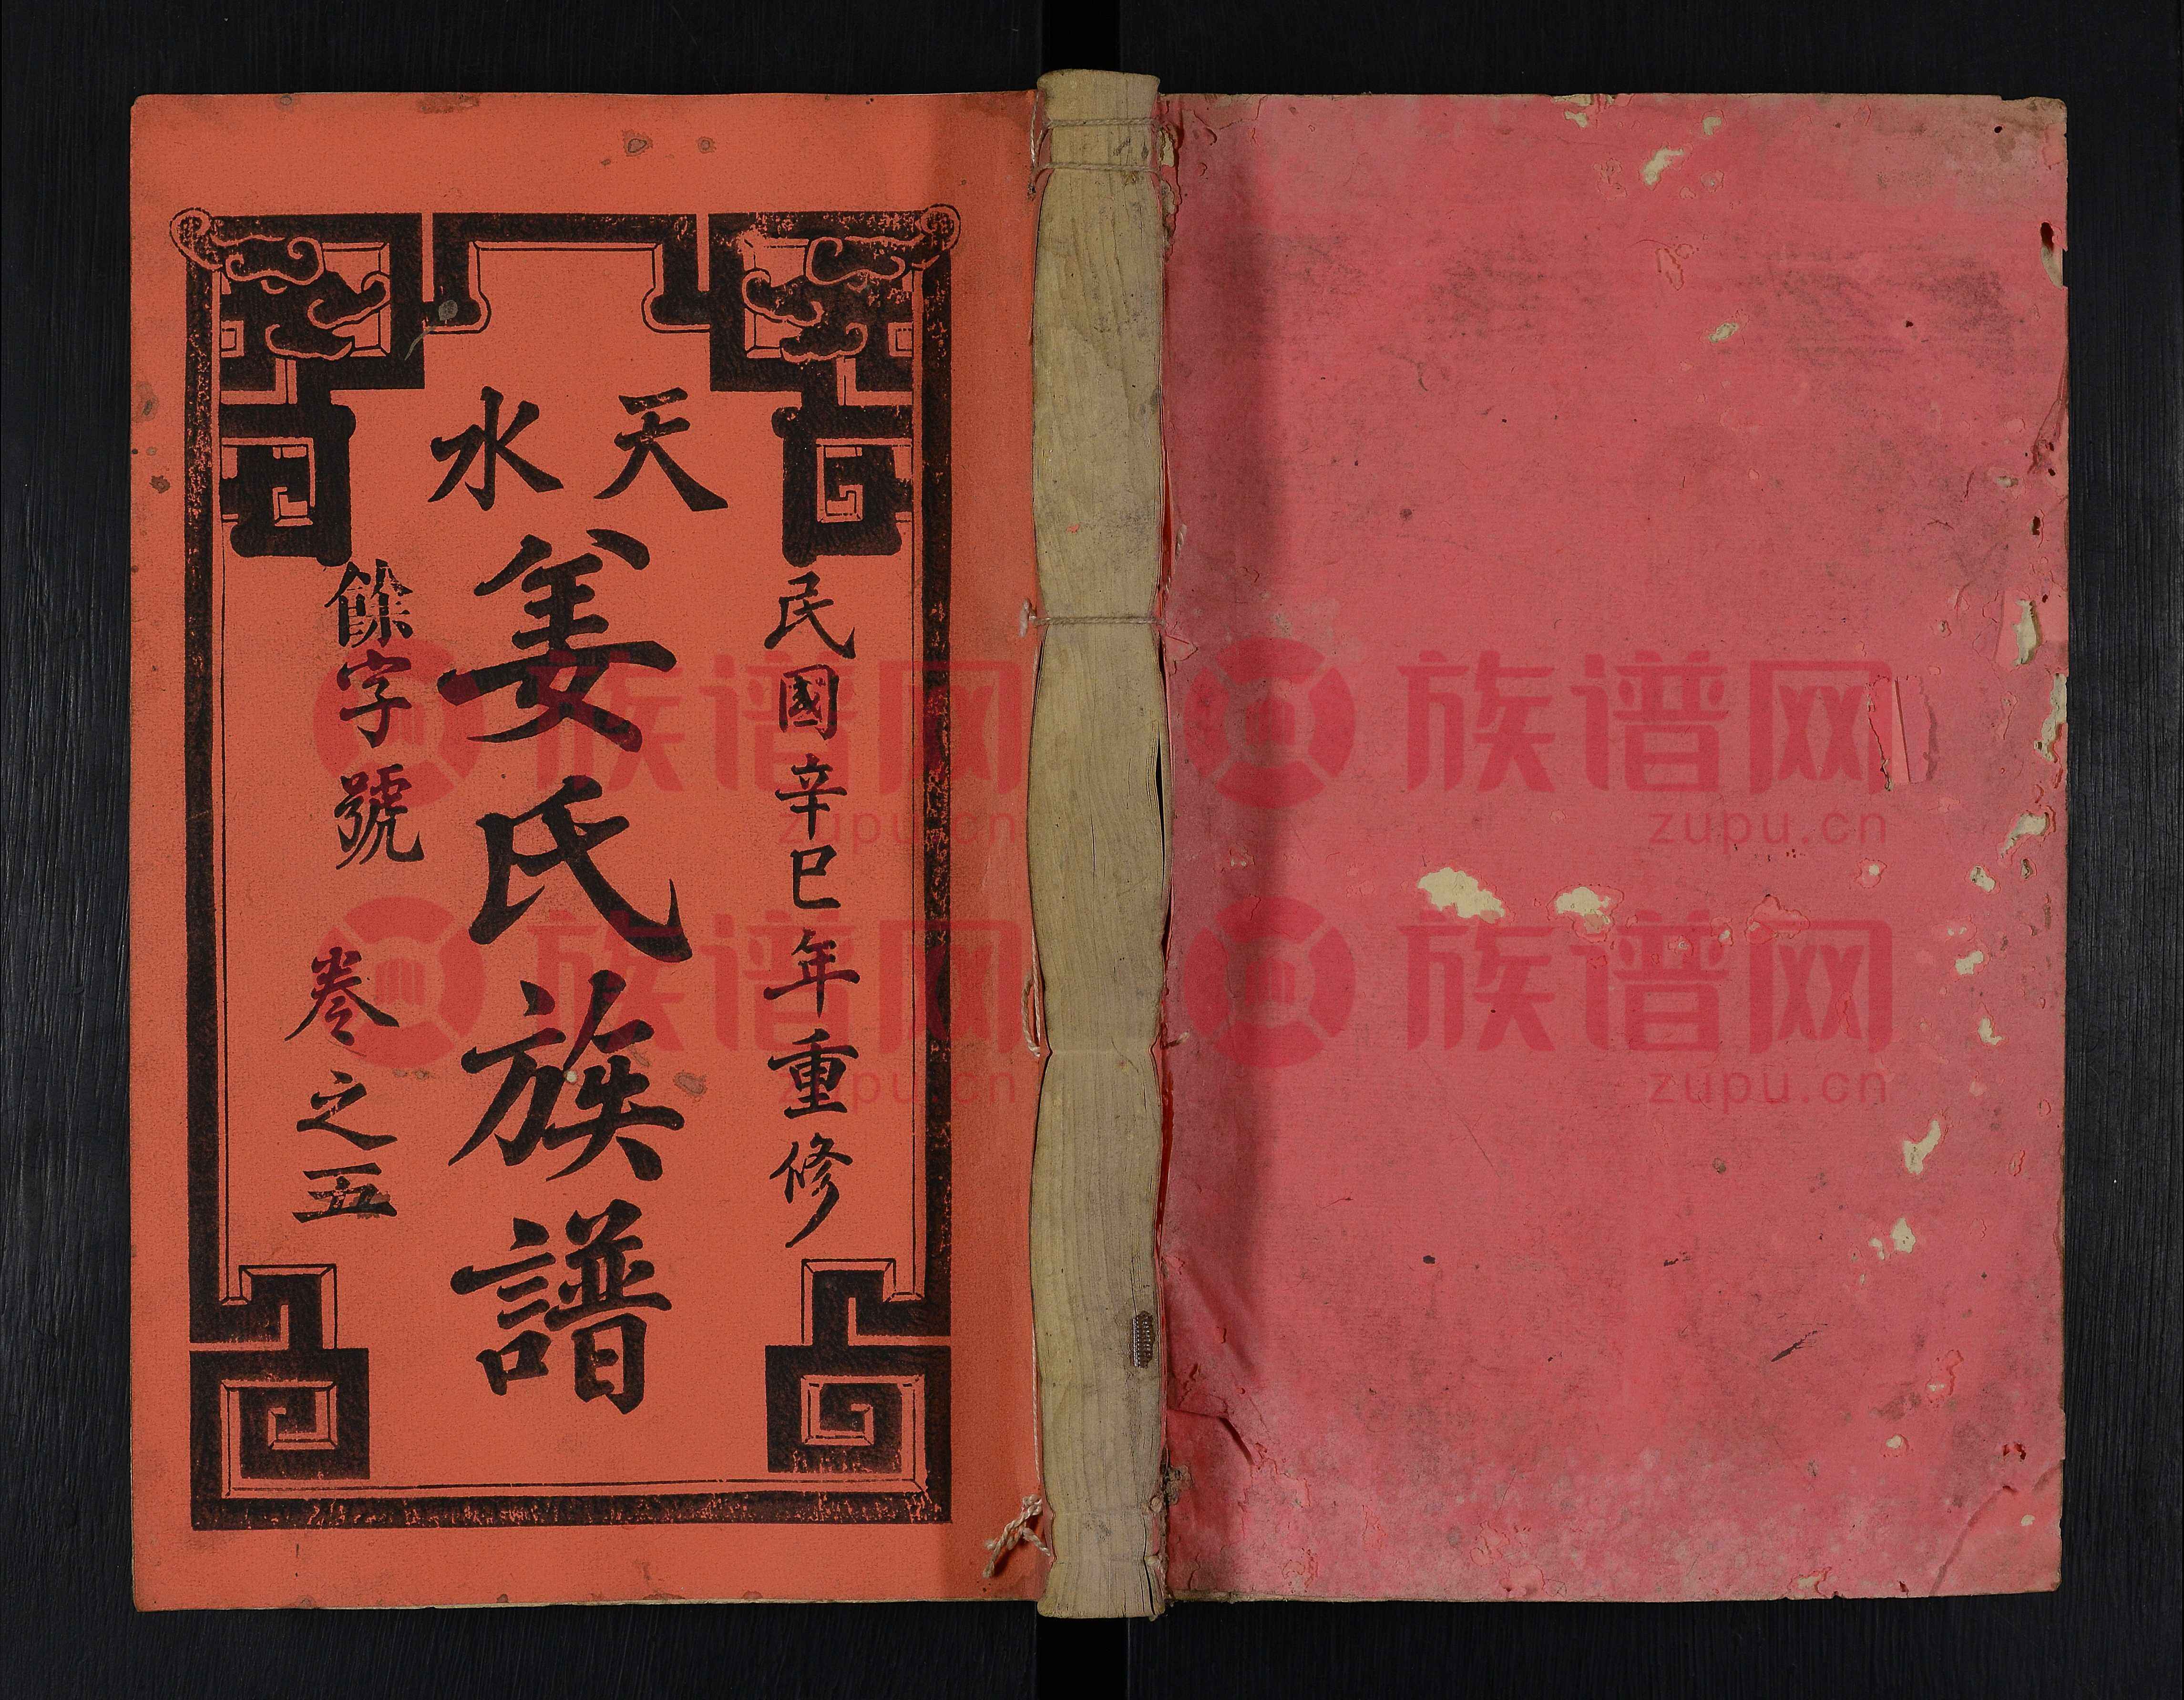 天水
民國辛巳年重修
姜氏族譜
餘字號 卷之五
族谱网
zupu.cn
族谱网
zupu.cn
族谱网
zupu.cn
族谱网
zupu.cn